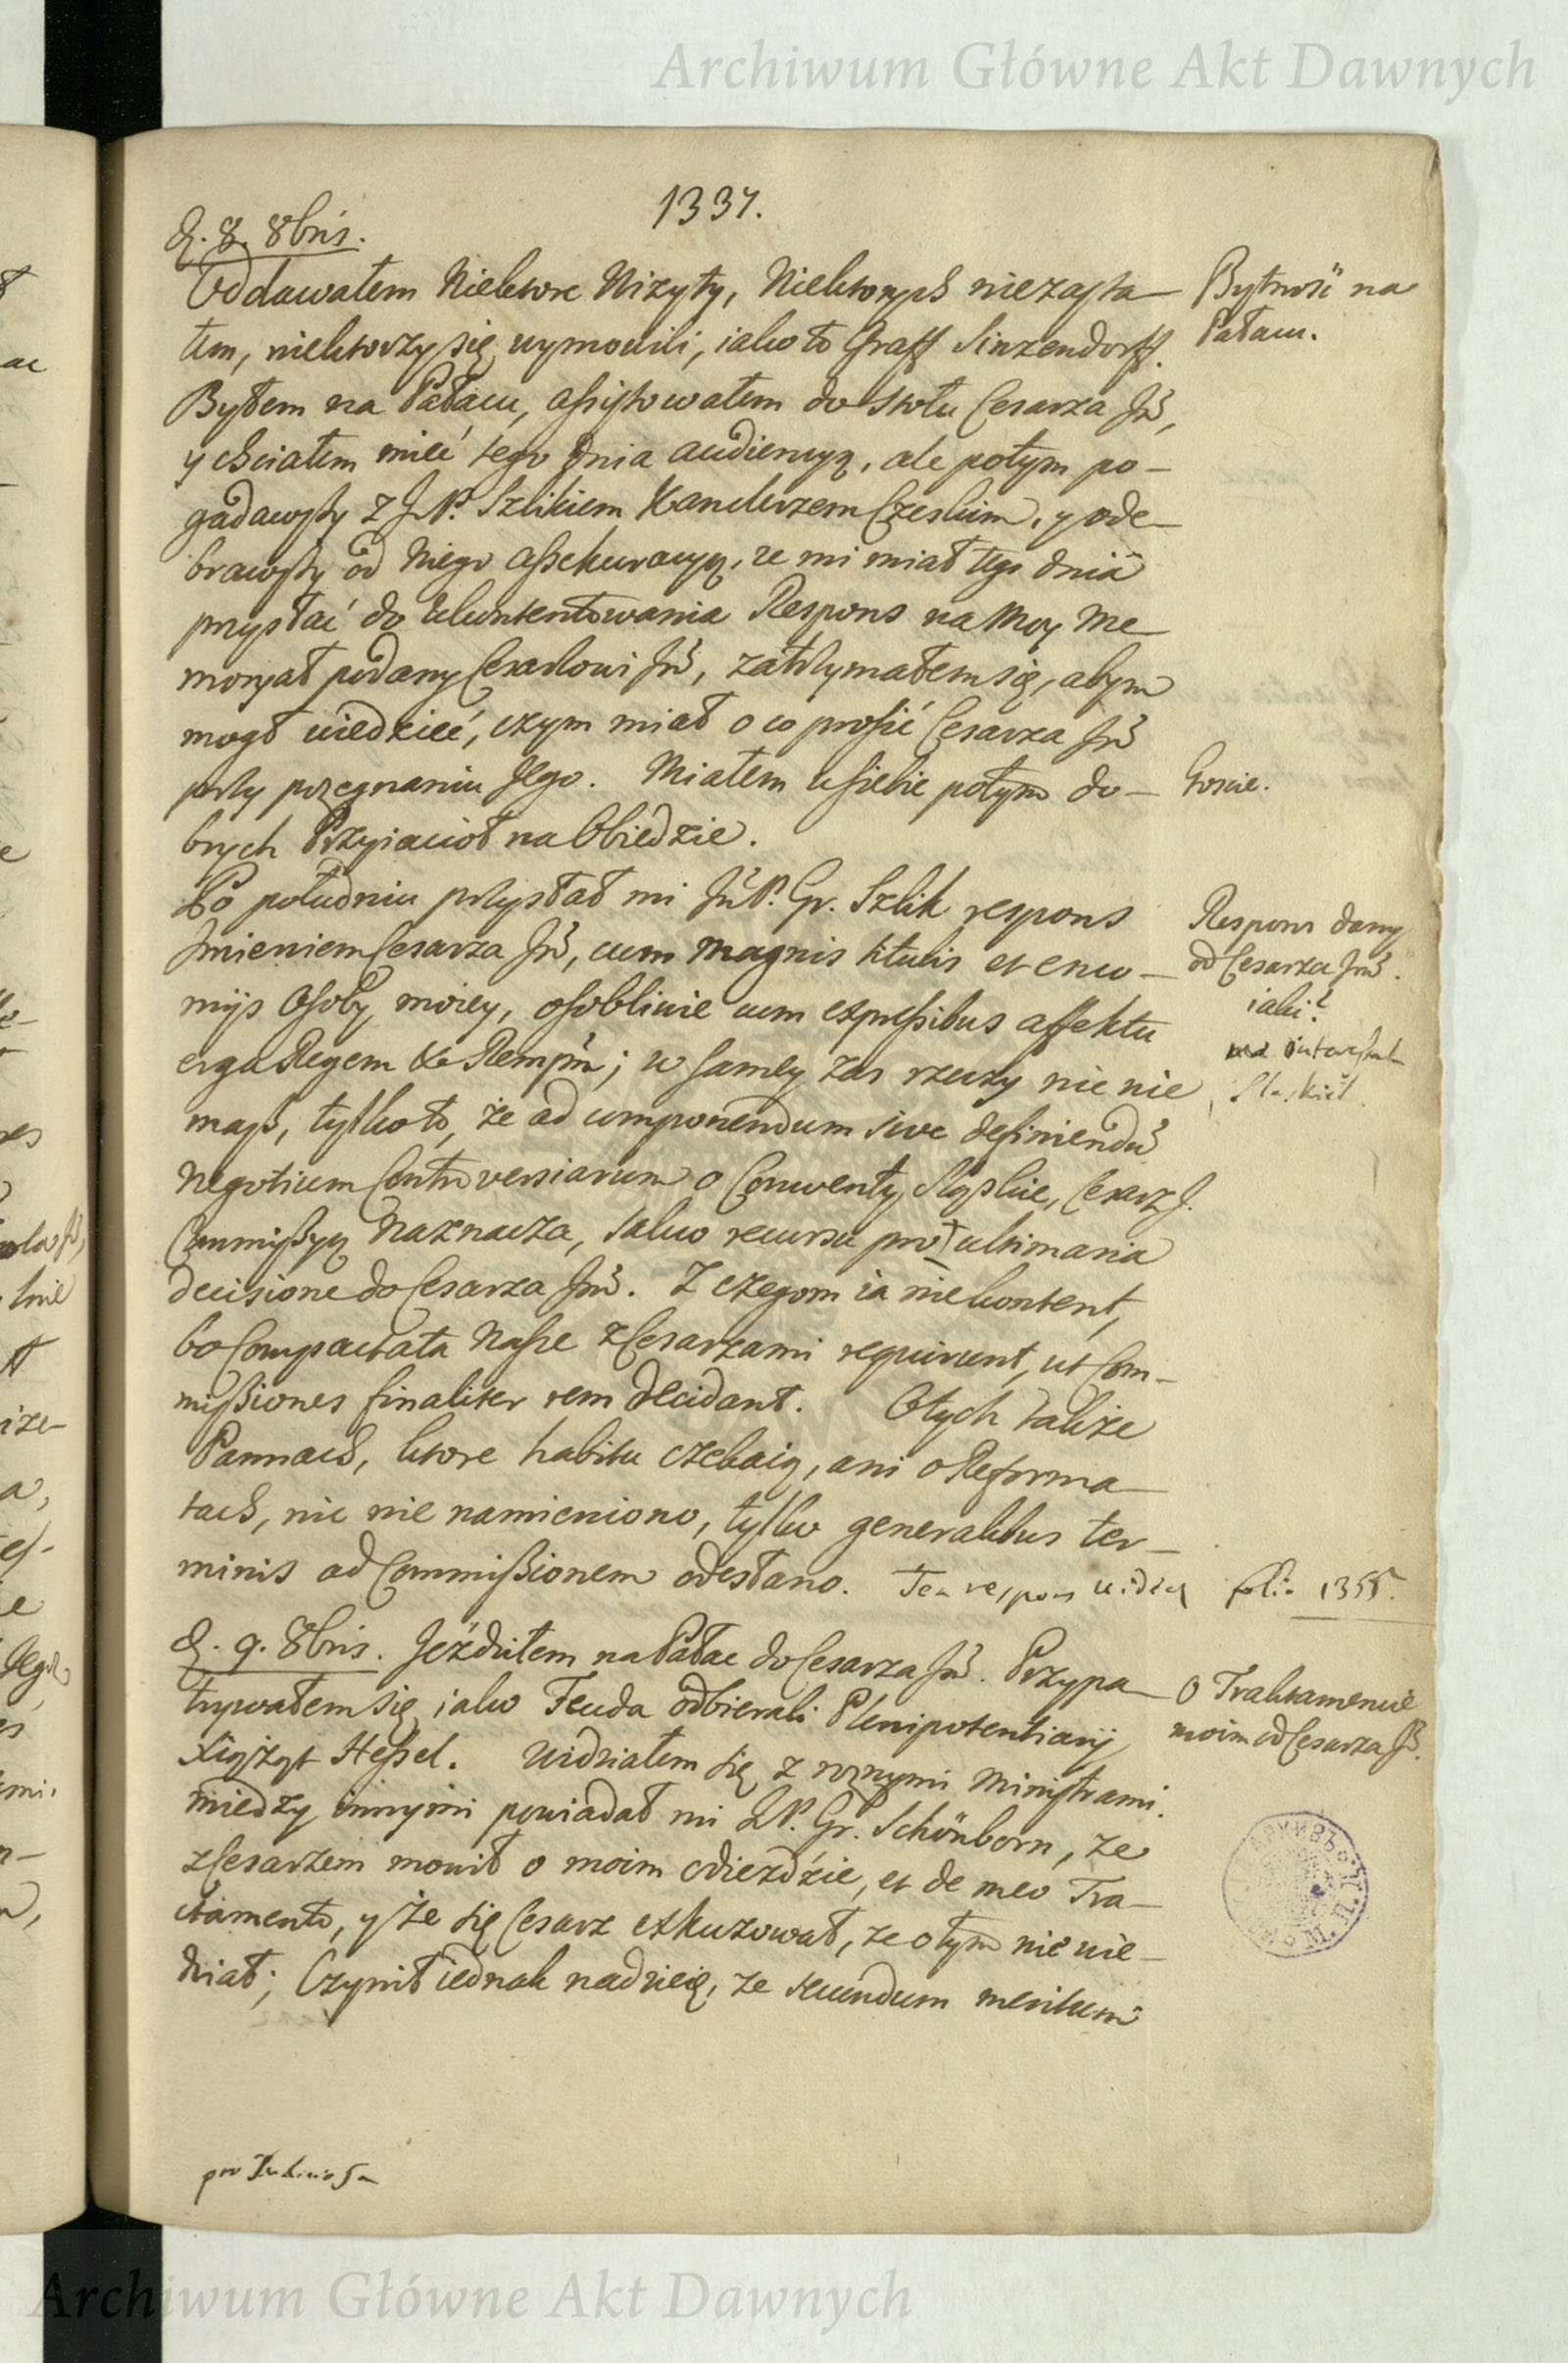 Archiwum Główne Akt Dawnych
1337.
d. 8. 8bris.
Oddawałem Niektore Wizyty, Niektorych niezasta-
łem, niektorzy się wymowili, iako to Graff Sinzendorff.
Bytność na
Pałacu.
Byłem na Pałacu, assystowałem do stołu Cesarza Jmć,
y chciałem mieć tego dnia audiencyą, ale potym po-
gadawszy z J.P. Szlikiem Kanclerzem Czeskim, y ode-
brawszy od niego assekuracyą, że mi miał tego dnia
przysłać do ukontentowania Respons na moy Me-
moryał podany Cesarzowi Jmć, zatrzymałem się, abym
mogł wiedzieć, czym miał o co prosić Cesarza Jmć
przy pożegnaniu Jego. Miałem u siebie potym do-
Goscie.
brych Przyiacioł na Obiedzie.
Po południu przysłał mi JmP. Gr. Szlik respons
Respons dany
od Cesarza Jmć.
iaki?
Imieniem Cesarza Jmć, cum magnis titulis et enco-
mijs Osoby moiey, osobliwie cum expressibus affektu
erga Regem & Rempm; w samey zas rzeczy nic nie
masz, tylko to, że ad componendum sive definiendū
negotium Controversiarum o Conwenty Sląskie, Cesarz J.
Commissyą naznacza, salvo recursu pro ultimaria
decisione do Cesarza Jmć. Z czegom ia nie kontent,
bo Compactata Nasze z Cesarzami requirunt, ut Com-
missiones finaliter rem decidant. O tych także
Pannach, ktore habitu czekaią, ani o Reforma-
tach, nic nie namieniono, tylko generalibus ter-
minis ad Commissionem odesłano. Ten respons widzieć folio 1355.
d. 9. 8bris. Jeździłem na Pałac do Cesarza Jmć. Przypa-
O Traktamencie
moim od Cesarza J.
trywałem się, iako Feuda odbierali Plenipotentiarij
Xiążąt Hessel. Widziałem się z roznymi Ministrami.
między innymi powiadał mi J.P. Gr. Schönborn, że
z Cesarzem mowił o moim odieździe, et de meo Tra-
ctamento, y że się Cesarz exkuzował, że o tym nie wie-
dział; Czynił iednak nadzieię, że secundum meritum
Archiwum Główne Akt Dawnych